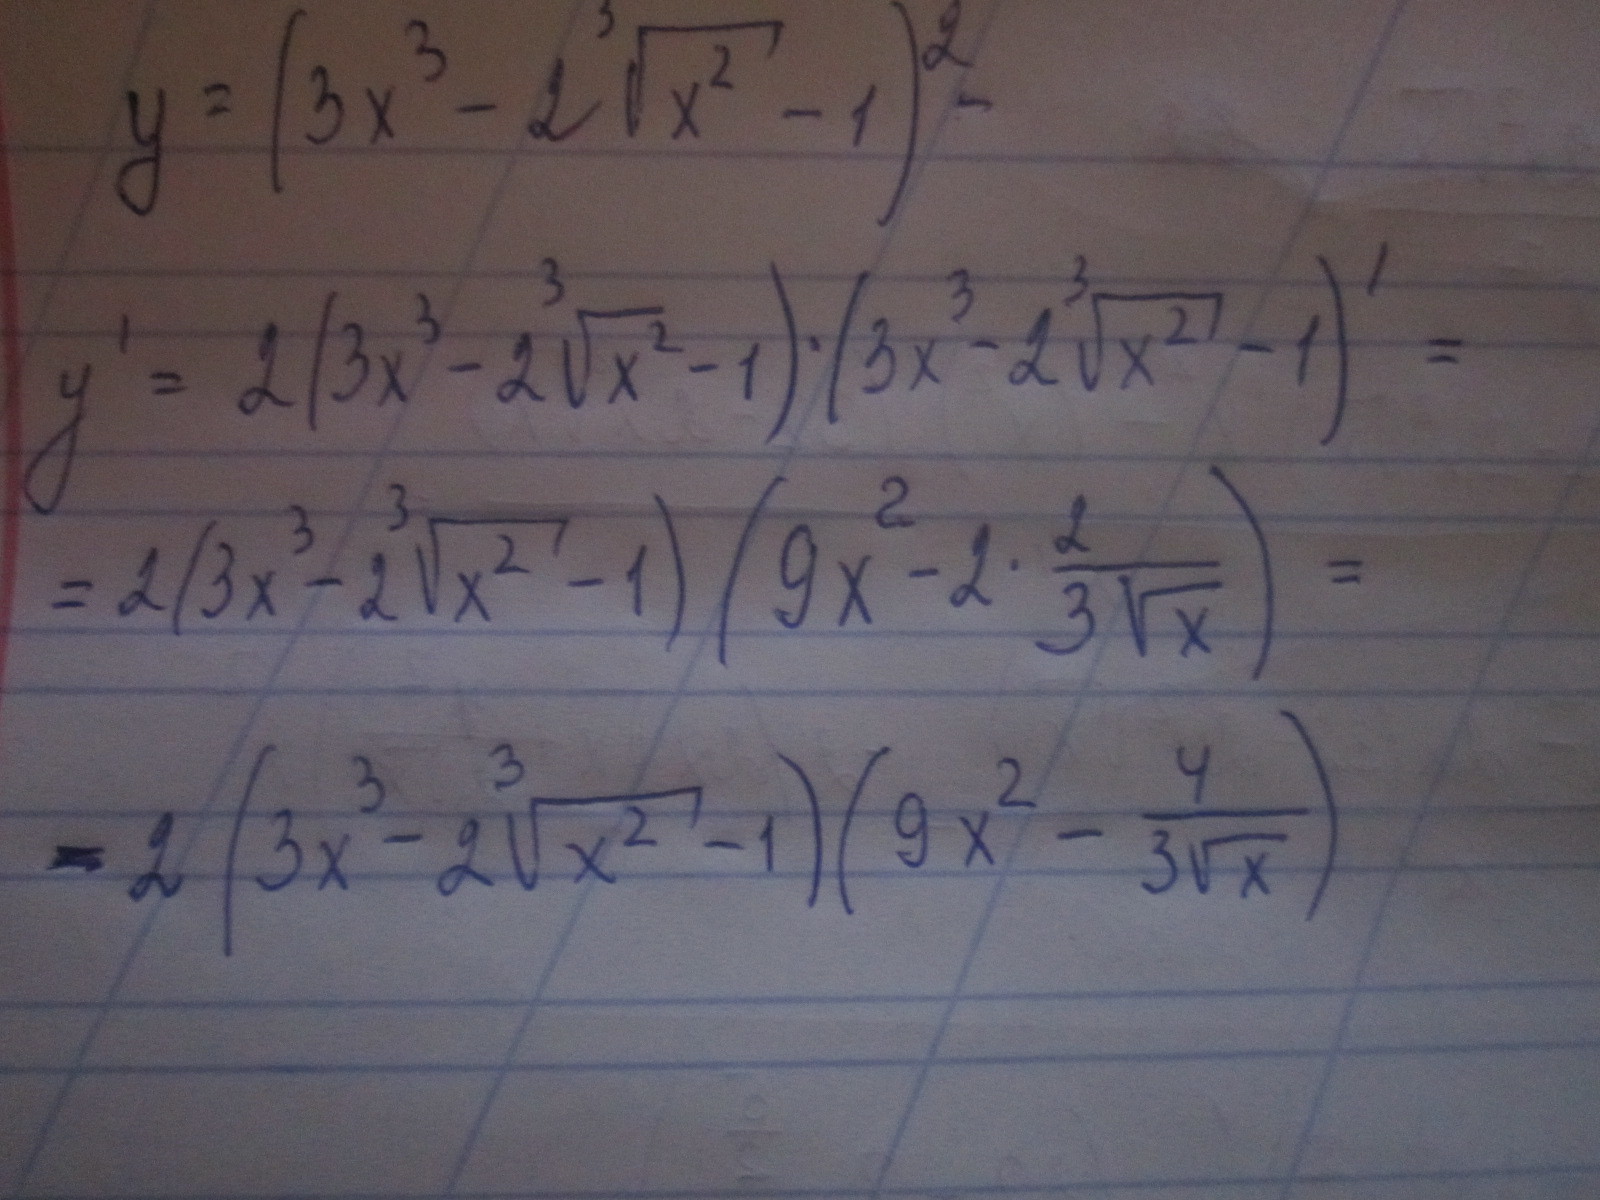 y = (3x³ - 2∛x² - 1)² -
y' = 2(3x³ - 2∛x² - 1)·(3x³ - 2∛x² - 1)' =
= 2(3x³ - 2∛x² - 1)(9x² - 2·2/(3√x)) =
- 2(3x³ - 2∛x² - 1)(9x² - 4/(3√x))